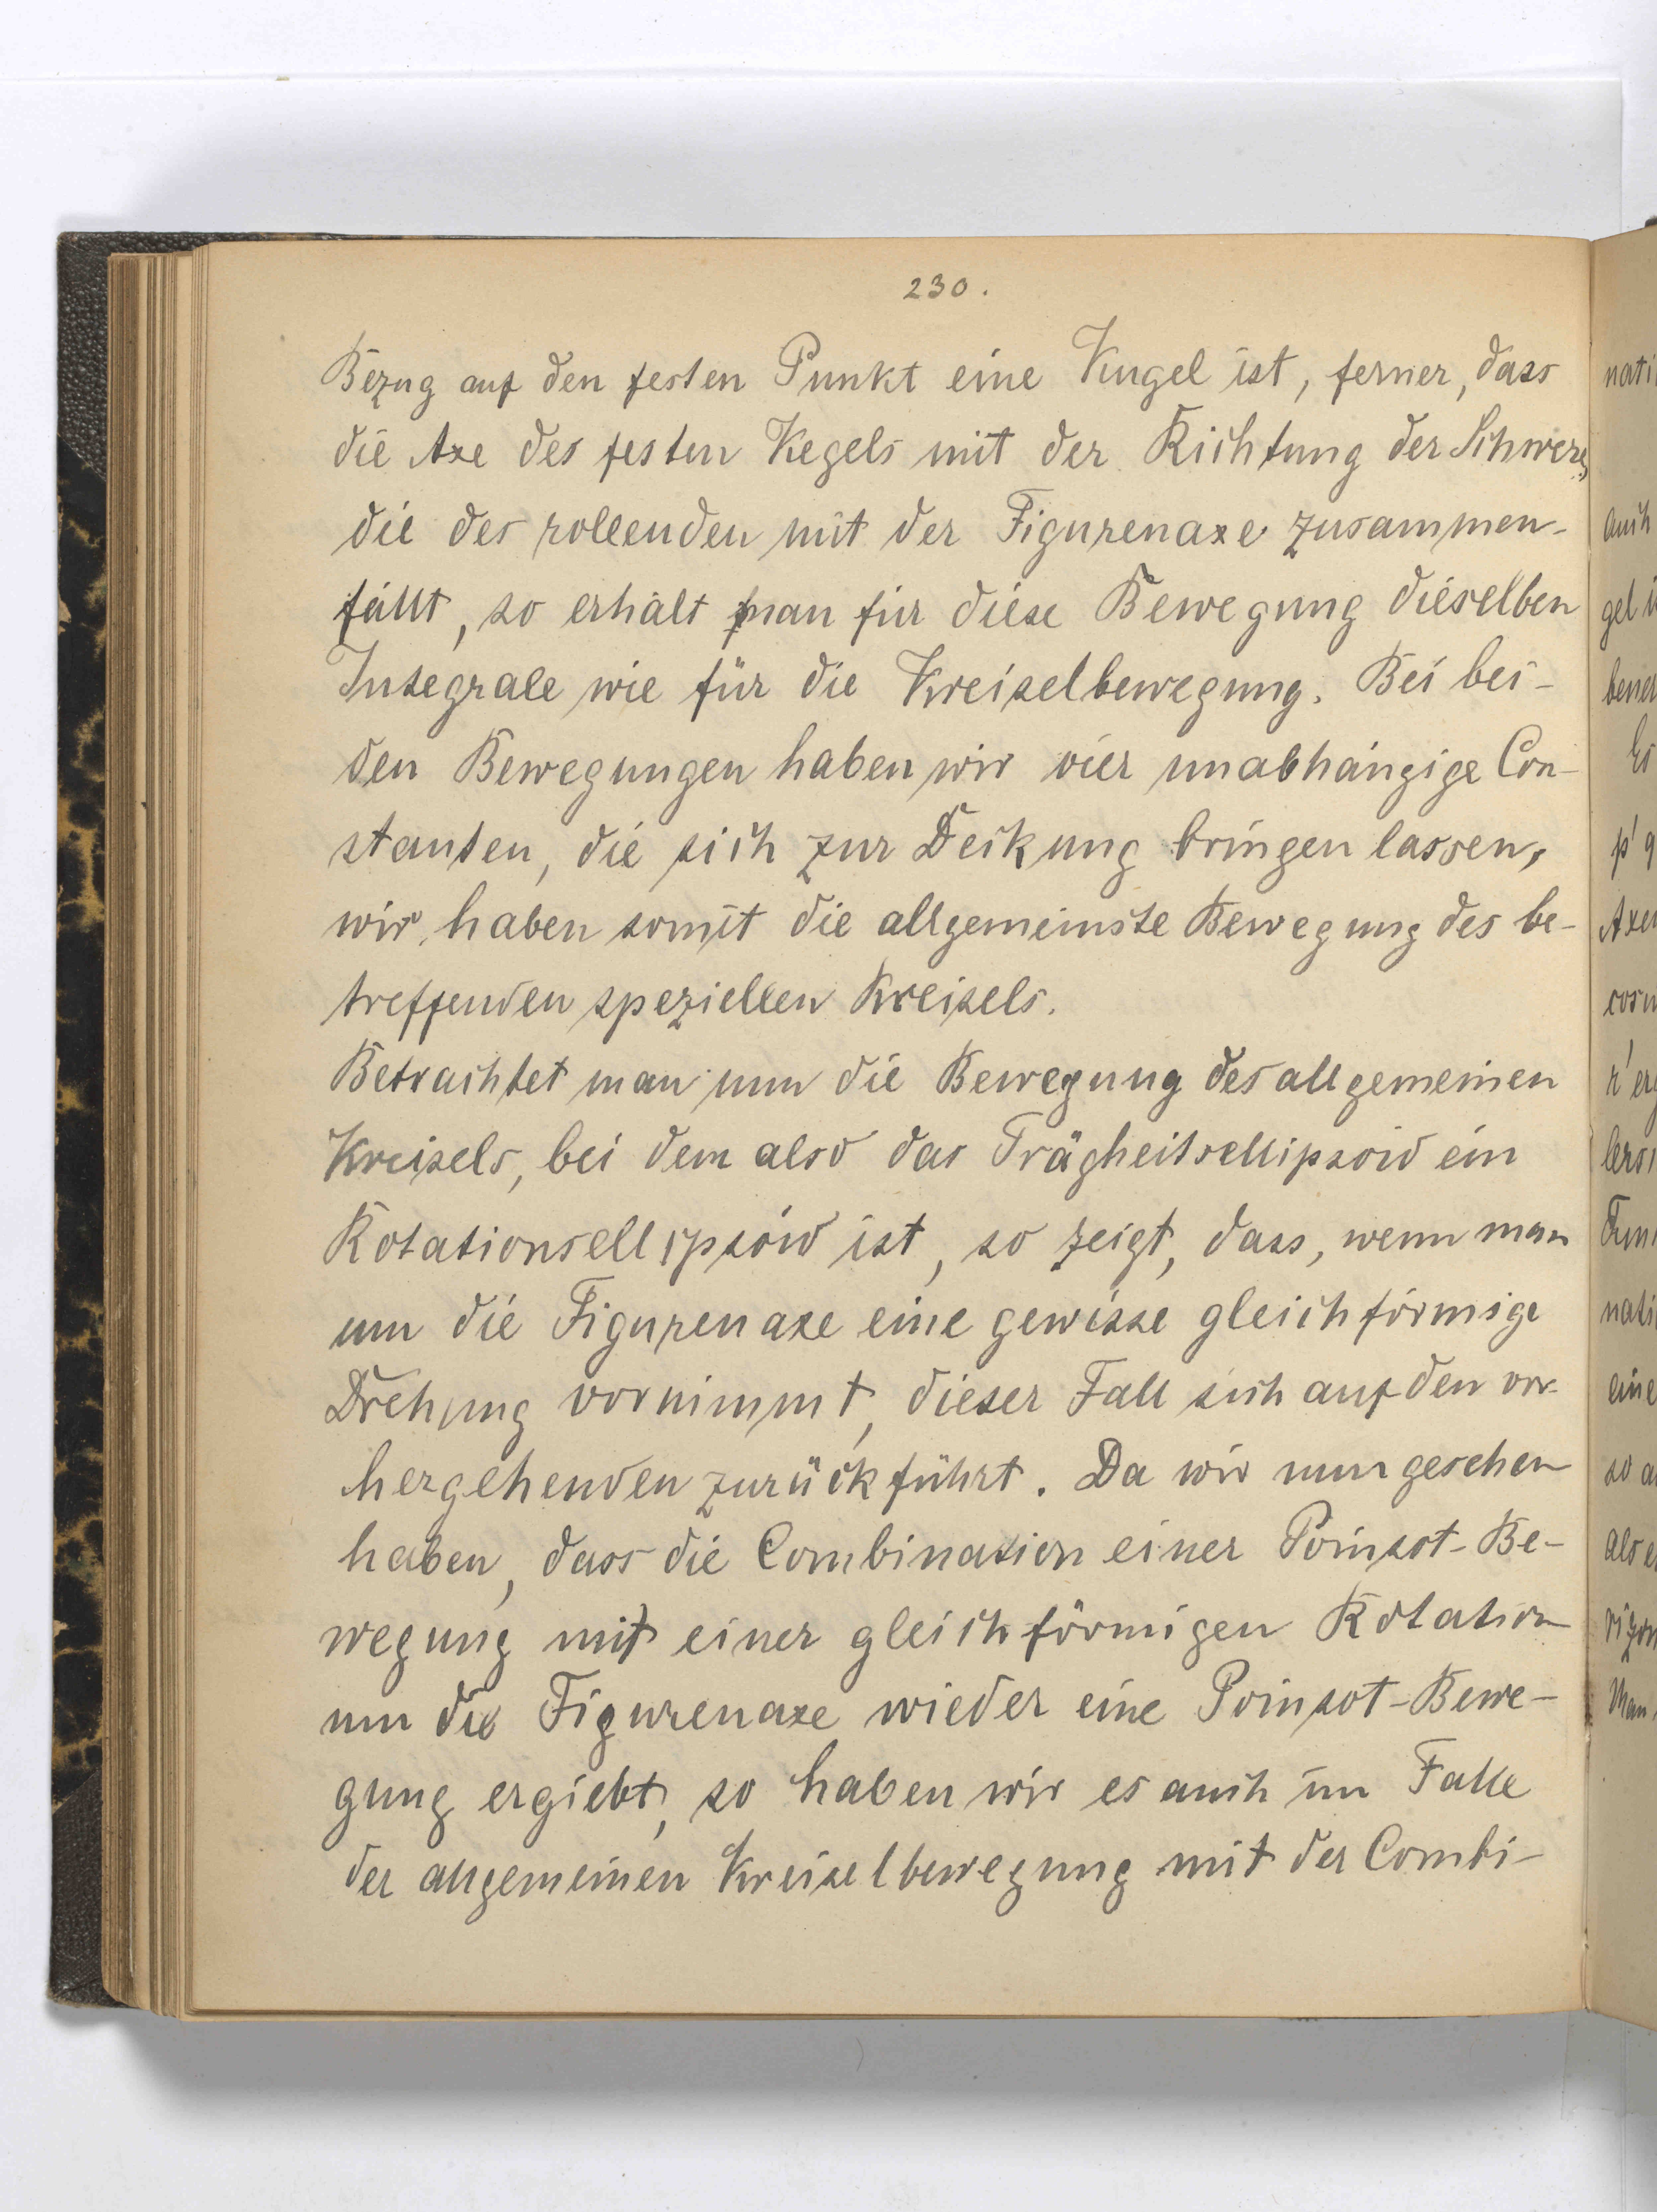 230.
Bezug auf den festen Punkt eine Kugel ist, ferner, dass
die Axe des festen Kegels mit der Richtung der Schwere,
die des rollenden mit der Figurenaxe zusammen-
fällt, so erhält man für diese Bewegung dieselben
Integrale wie für die Kreiselbewegung. Bei bei-
den Bewegungen haben wir vier unabhängige Con-
stanten, die sich zur Deckung bringen lassen,
wir haben somit die allgemeinste Bewegung des be-
treffenden speziellen Kreisels.
Betrachtet man nun die Bewegung des allgemeinen
Kreisels, bei dem also das Trägheitsellipsoid ein
Rotationsellipsoid ist, so zeigt, dass, wenn man
um die Figurenaxe eine gewisse gleichförmige
Drehung vornimmt, dieser Fall sich auf den vor-
hergehenden zurückführt. Da wir nun gesehen
haben, dass die Combination einer Poinsot-Be-
wegung mit einer gleichförmigen Rotation
um die Figurenaxe wieder eine Poinsot-Bewe-
gung ergiebt, so haben wir es auch im Falle
der allgemeinen Kreiselbewegung mit der Combi-
nati
auch
gel i
bener
Es
p' q
Axen
cosn
r' erg
lers
Fun
nati
eine
so a
als e
rizon
Man